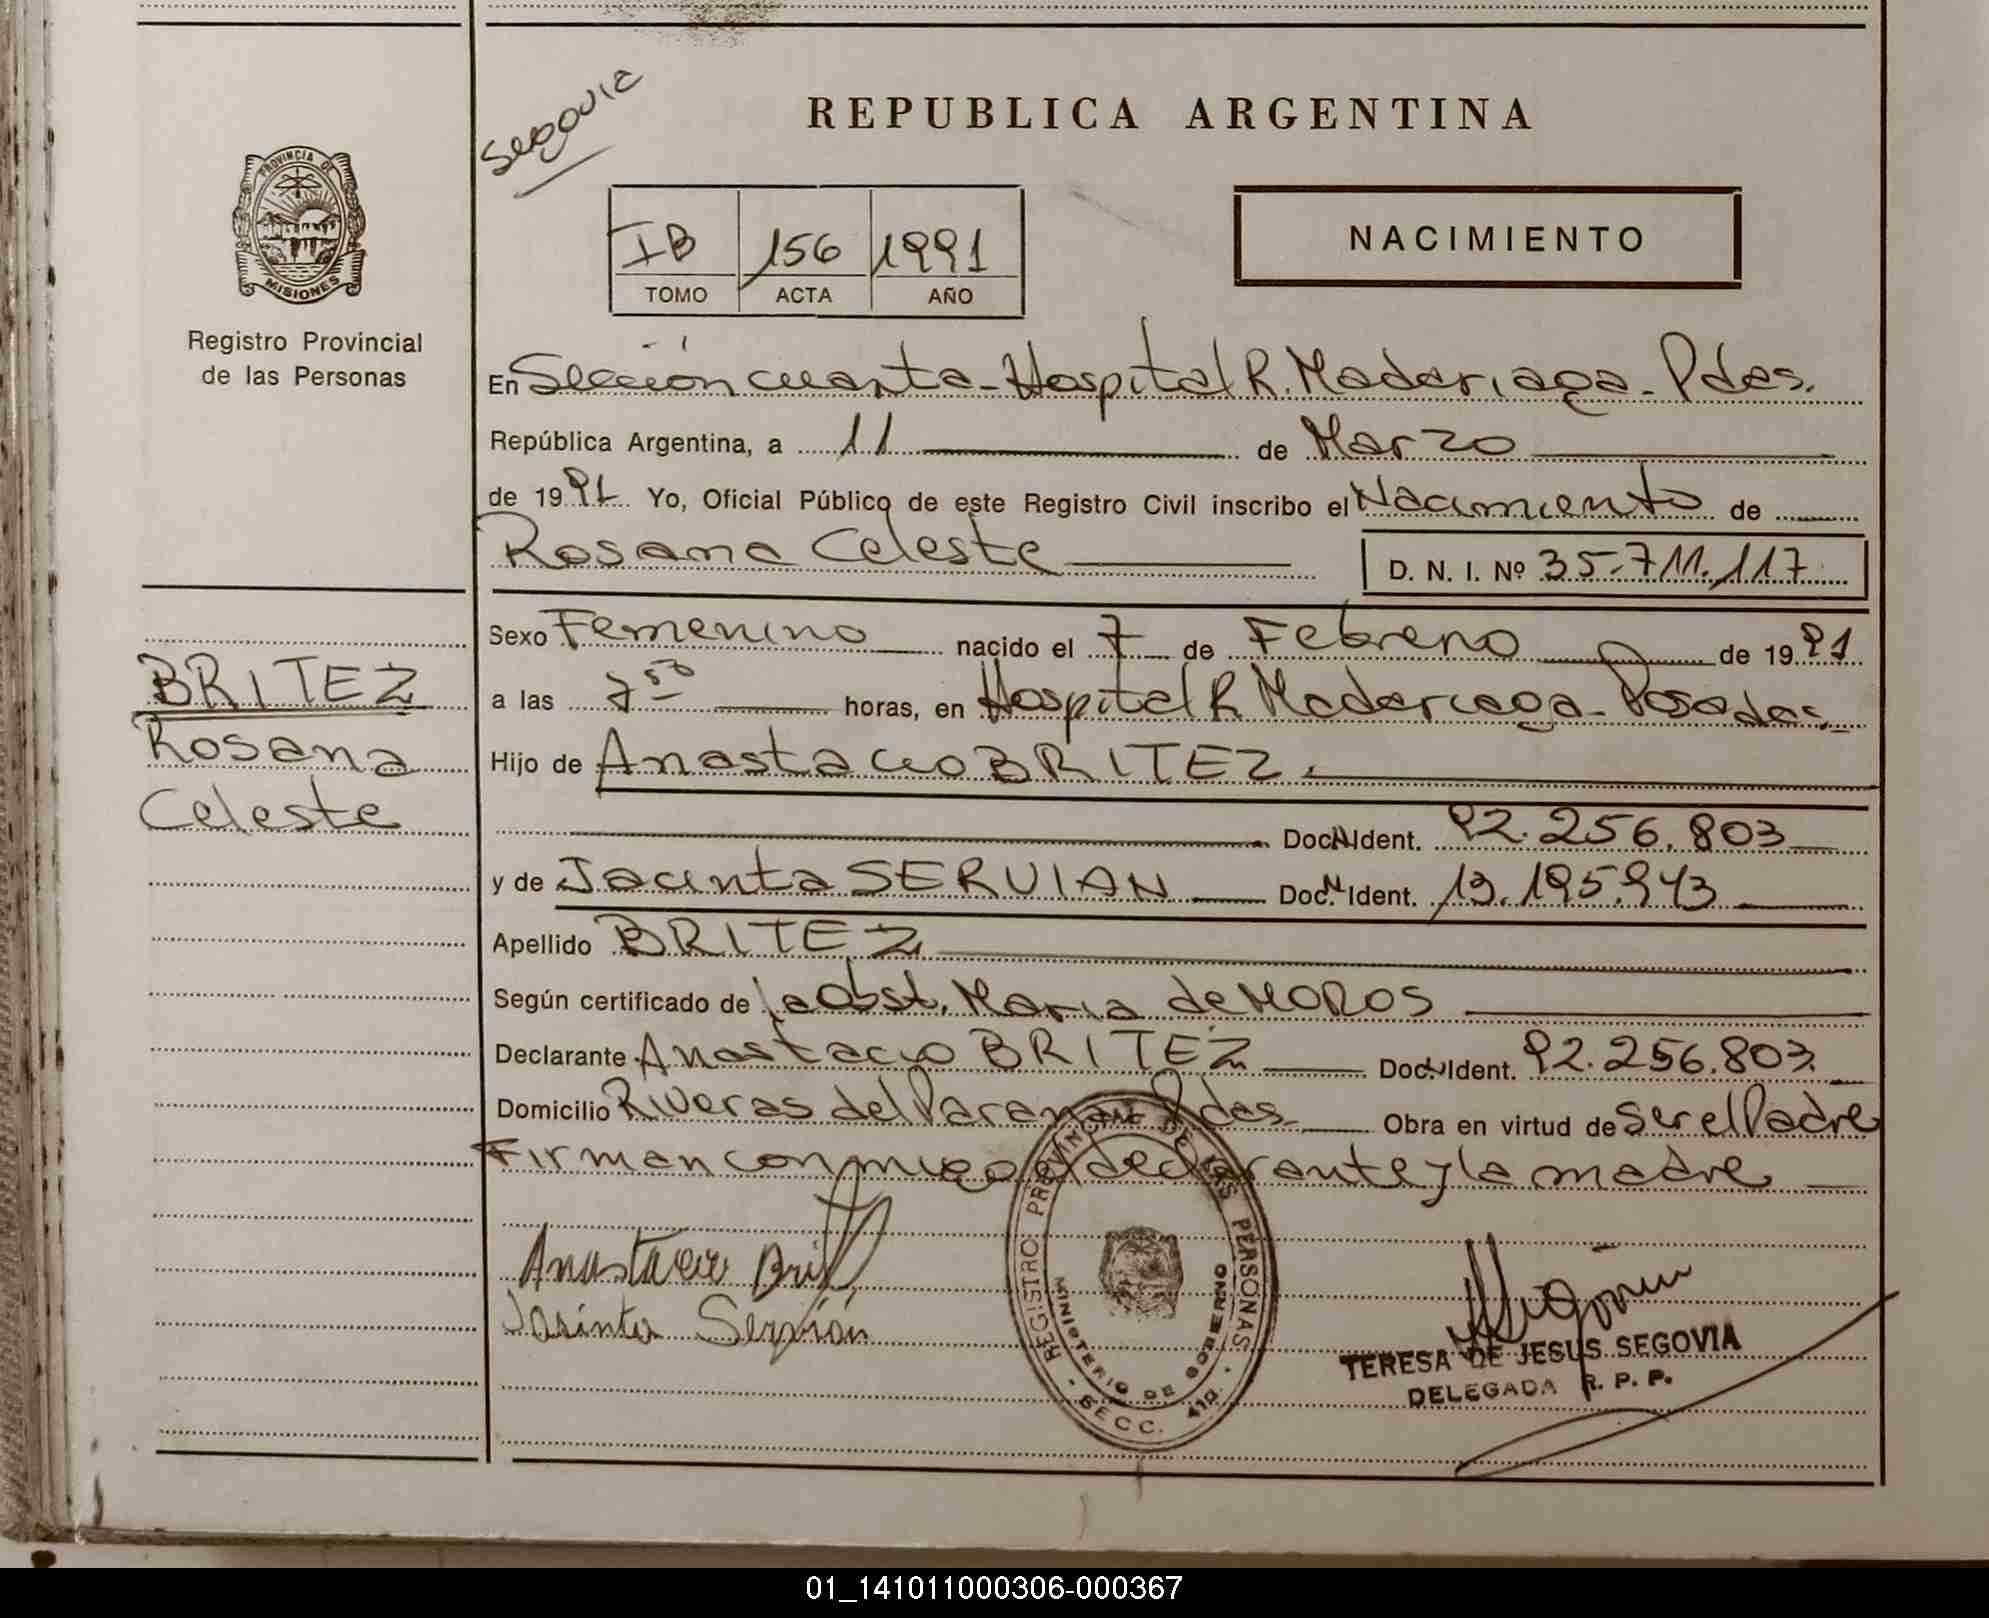 REPUBLICA ARGENTINA
Segovia
PROVINCIA DE
MISIONES
Registro Provincial
de las Personas
IB 156 1991
TOMO ACTA AÑO
NACIMIENTO
En Sección cuarta - Hospital R. Madariaga - Pdas.
República Argentina, a 11 de Marzo
de 1991 Yo, Oficial Público de este Registro Civil inscribo el Nacimiento de
Rosana Celeste D. N. I. Nº 35.711.117
BRITEZ
Rosana
Celeste
Sexo Femenino nacido el 7 de Febrero de 1991
a las 7 50 horas, en Hospital R Madariaga - Posadas
Hijo de Anastacio BRITEZ.
Doc. Ident. 92.256.803
y de Jacinta SERVIAN Doc. Ident. 13.195.943
Apellido BRITEZ
Según certificado de la Obst. Maria de MOROS
Declarante Anastacio BRITEZ Doc. Ident. 92.256.803
Domicilio Riveras del Parana Pdas. Obra en virtud de ser el Padre
Firman conmigo el declarante y la madre
Anastacio Brit
Jasinta Servián
REGISTRO PROVINCIAL DE LAS PERSONAS
MINISTERIO DE GOBIERNO
SECC. 4ta.
TERESA DE JESUS SEGOVIA
DELEGADA R. P. P.
01_141011000306-000367